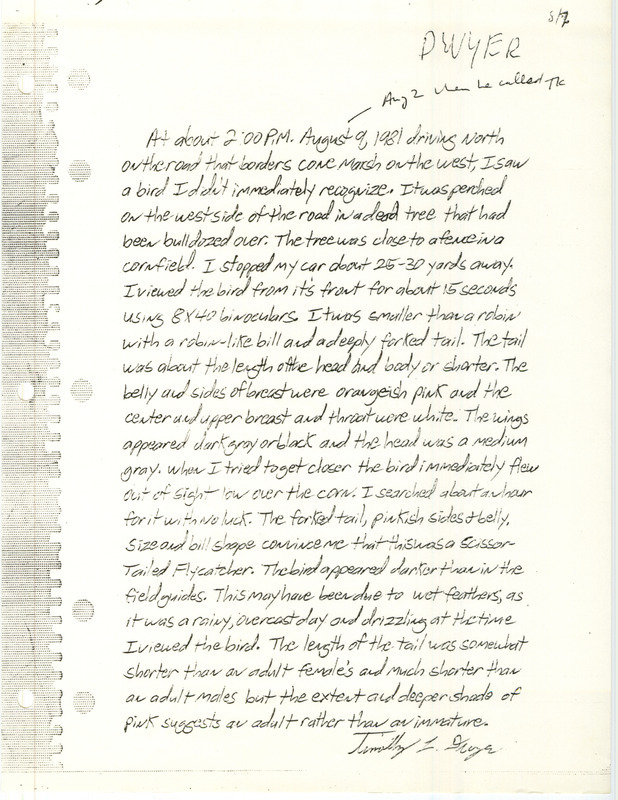 S/7
DWYER
Aug 2 when he called TK
At about 2:00 P.M. August 9, 1981 driving North
on the road that borders cone marsh on the west, I saw
a bird I didn't immediately recognize. It was perched
on the west side of the road in a dead tree that had
been bulldozed over. The tree was close to a fence in a
cornfield. I stopped my car about 25-30 yards away.
I viewed the bird from it's front for about 15 seconds
using 8X40 binoculars. It was smaller than a robin
with a robin-like bill and a deeply forked tail. The tail
was about the length of the head and body or shorter. The
belly and sides of breast were orangeish pink and the
center and upper breast and throat were white. The wings
appeared dark gray or black and the head was a medium
gray. When I tried to get closer the bird immediately flew
out of sight low over the corn. I searched about an hour
for it with no luck. The forked tail, pinkish sides & belly,
size and bill shape convince me that this was a Scissor-
Tailed Flycatcher. The bird appeared darker than in the
field guides. This may have been due to wet feathers, as
it was a rainy, overcast day and drizzling at the time
I viewed the bird. The length of the tail was somewhat
shorter than an adult female's and much shorter than
an adult males but the extent and deeper shade of
pink suggests an adult rather than an immature.
Timothy L. Dwyer